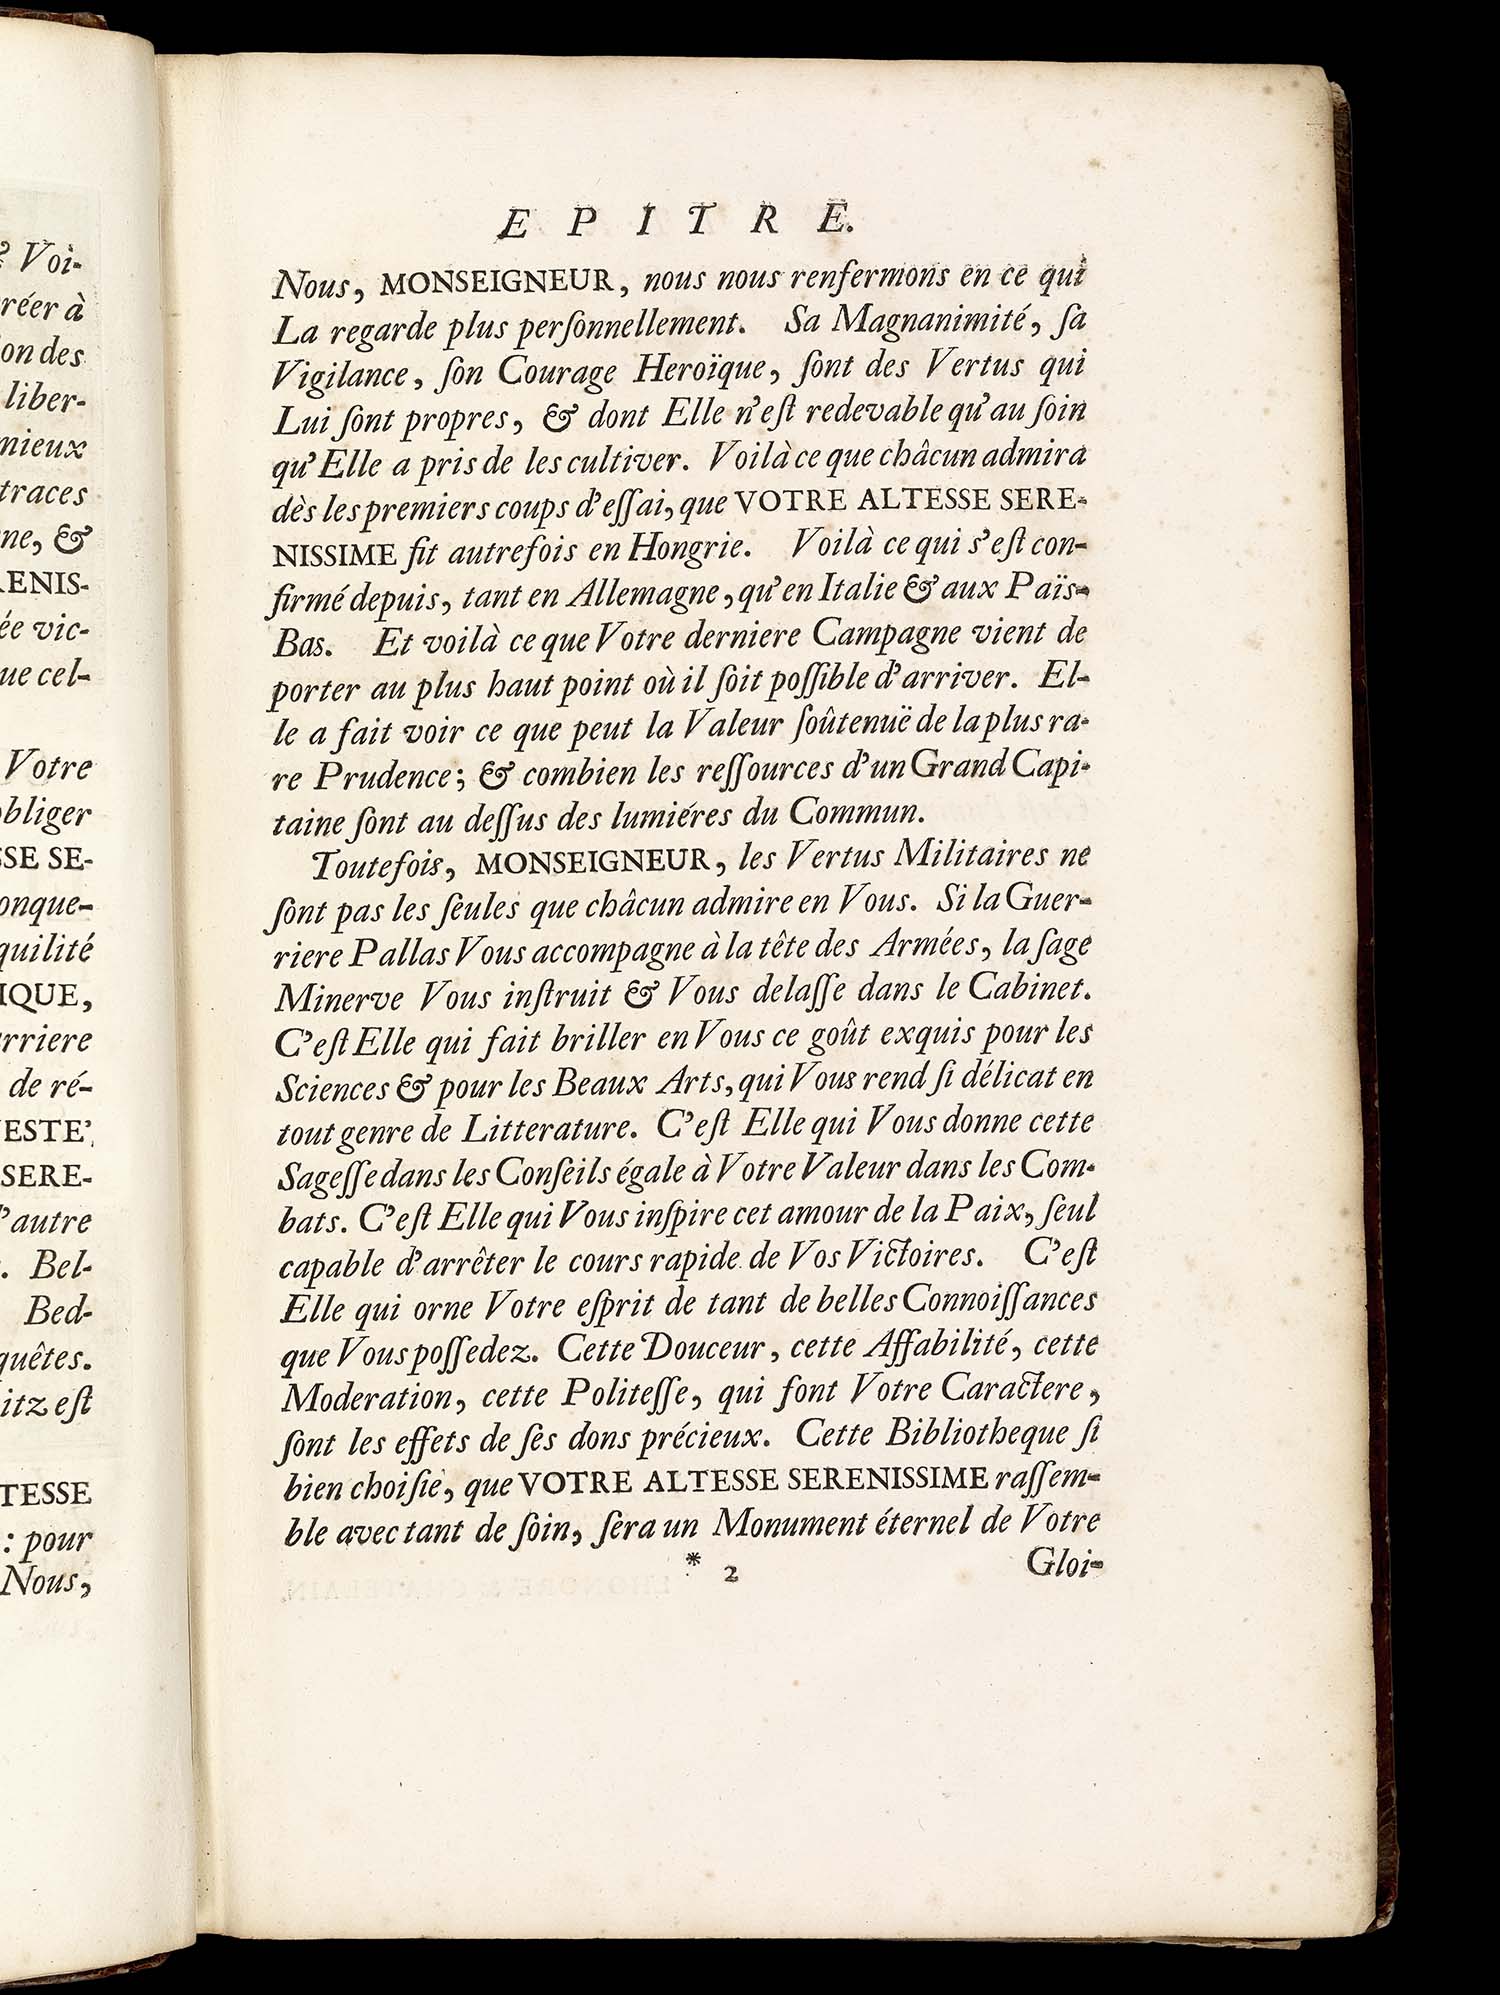 & Voi-
réer à
on des
liber-
mieux
traces
ne, &
RENIS-
ée vic-
ue cel-
Votre
obliger
SSE SE-
onque-
quilité
IQUE,
rriere
de ré-
ESTE',
SERE-
d'autre
. Bel-
Bed-
quêtes.
itz eſt
TESSE
: pour
Nous,
EPITRE.
Nous, MONSEIGNEUR, nous nous renfermons en ce qui
La regarde plus perſonnellement. Sa Magnanimité, ſa
Vigilance, ſon Courage Heroïque, ſont des Vertus qui
Lui ſont propres, & dont Elle n'eſt redevable qu'au ſoin
qu'Elle a pris de les cultiver. Voilà ce que châcun admira
dès les premiers coups d'eſſai, que VOTRE ALTESSE SERE-
NISSIME fit autrefois en Hongrie. Voilà ce qui s'eſt con-
firmé depuis, tant en Allemagne, qu'en Italie & aux Païs-
Bas. Et voilà ce que Votre derniere Campagne vient de
porter au plus haut point où il ſoit poſſible d'arriver. El-
le a fait voir ce que peut la Valeur ſoûtenuë de la plus ra-
re Prudence; & combien les reſſources d'un Grand Capi-
taine ſont au deſſus des lumiéres du Commun.
Toutefois, MONSEIGNEUR, les Vertus Militaires ne
ſont pas les ſeules que châcun admire en Vous. Si la Guer-
riere Pallas Vous accompagne à la tête des Armées, la ſage
Minerve Vous inſtruit & Vous delaſſe dans le Cabinet.
C'eſt Elle qui fait briller en Vous ce goût exquis pour les
Sciences & pour les Beaux Arts, qui Vous rend ſi délicat en
tout genre de Litterature. C'eſt Elle qui Vous donne cette
Sageſſe dans les Conſeils égale à Votre Valeur dans les Com-
bats. C'eſt Elle qui Vous inſpire cet amour de la Paix, ſeul
capable d'arrêter le cours rapide de Vos Victoires. C'eſt
Elle qui orne Votre eſprit de tant de belles Connoiſſances
que Vous poſſedez. Cette Douceur, cette Affabilité, cette
Moderation, cette Politeſſe, qui font Votre Caractere,
ſont les effets de ſes dons précieux. Cette Bibliotheque ſi
bien choiſie, que VOTRE ALTESSE SERENISSIME raſſem-
ble avec tant de ſoin, ſera un Monument éternel de Votre
* 2 Gloi-